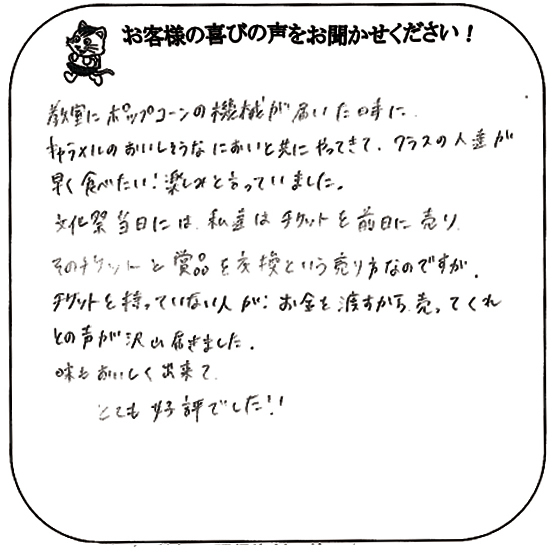 お客様の喜びの声をお聞かせください！
教室にポップコーンの機械が届いた時に
キャラメルのおいしそうなにおいと共にやってきて、クラスの人達が
早く食べたい！楽しみと言っていました。
文化祭当日には、私達はチケットを前日に売り
そのチケットと賞品を交換という売り方なのですが、
チケットを持っていない人が：お金を渡すから売ってくれ
との声が沢山届きました。
味もおいしく出来て
とても好評でした！！